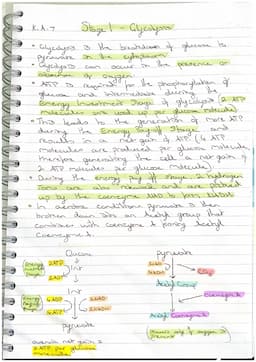 K.A.7 Stage 1 - Glycolysis
• Glycolysis is the breakdown of glucose to
pyruvate in the cytoplasm
• Glycolysis can occur in the presence or
absence of oxygen
• ATP is required for the phosphorylation of
glucose and intermediates during the
Energy Investment Stage of glycolysis (2 ATP
molecules are used up per glucose molecule)
• This leads to the generation of more ATP
during the Energy Pay off Stage and
results in a net gain of ATP (4 ATP
molecules are produced per glucose molecule,
therefore generating the cell a net gain of
2 ATP molecules per glucose molecule)
• During the energy pay off stage 2 hydrogen
ions are also removed and are picked
up by the coenzyme NAD to form NADH
• In aerobic conditions pyruvate is then
broken down into an Acetyl group that
combines with coenzyme A forming Acetyl
Coenzyme A.
Glucose
2ATP
2ADP
Int
Int
4ADP
4ATP
NAD
NADH
Pyruvate
overall net gain =
2 ATP per glucose
molecule
Pyruvate
NAD
NADH
CO2
Acetyl Group
Coenzyme A
Acetyl Coenzyme A